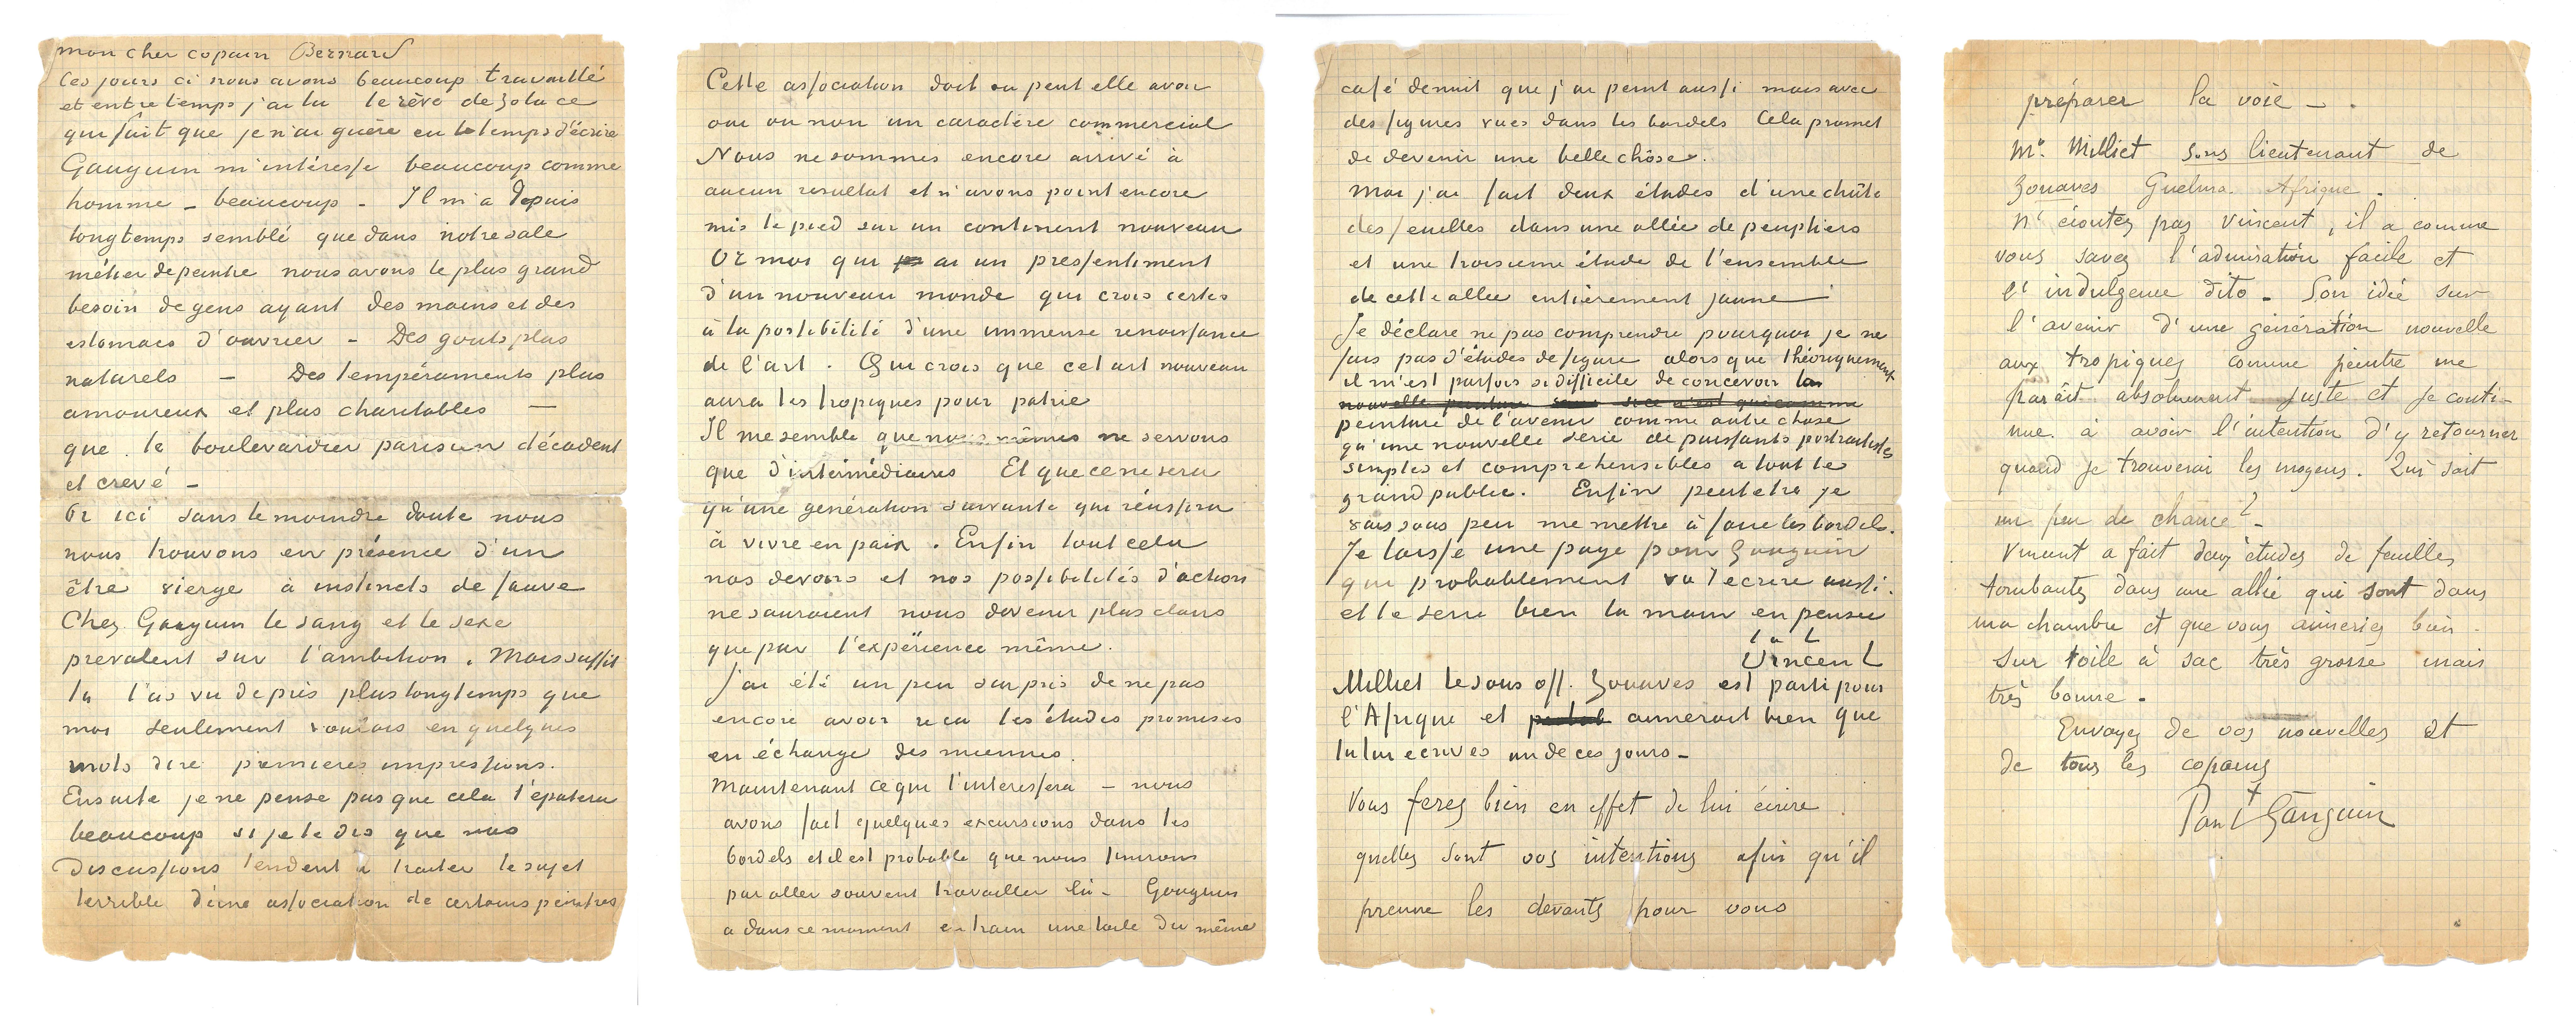 mon cher copain Bernard
Ces jours ci nous avons beaucoup travaillé
et entretemps j'ai lu le rêve de Zola ce
qui fait que je n'ai guère eu le temps d'écrire
Gauguin m'intéresse beaucoup comme
homme – beaucoup – Il m'a depuis
longtemps semblé que dans notre sale
métier de peintre nous avons le plus grand
besoin de gens ayant des mains et des
estomacs d'ouvrier – Des gouts plus
naturels – Des tempéraments plus
amoureux et plus charitables –
que le boulevardier parisien décadent
et crevé –
Or ici sans le moindre doute nous
nous trouvons en présence d'un
être vierge à instincts de sauve
Chez Gauguin le sang et le sexe
prevalent sur l'ambition. Mais suffit
tu l'as vu de près plus longtemps que
moi seulement voulais en quelques
mots dire premieres impressions.
Ensuite je ne pense pas que cela t'épatera
beaucoup si je te dis que nos
Discussions tendent à traiter le sujet
terrible d'une association de certains peintres
Cette association doit ou peut elle avoir
oui ou non un caractère commercial
Nous ne sommes encore arrivé à
aucun resultat et n'avons point encore
mis le pied sur un continent nouveau
Or moi qui ai un pressentiment
d'un nouveau monde qui crois certes
à la possibilité d'une immense renaissance
de l'art. Qui crois que cet art nouveau
aura les tropiques pour patrie
Il me semble que nous mêmes ne servons
que d'intermédiaires Et que ce ne sera
qu'une genération suivante qui réussira
à vivre en paix. Enfin tout cela
nos devoirs et nos possibilités d'action
ne sauraient nous devenir plus clairs
que par l'expérience même.
J'ai été un peu surpris de ne pas
encore avoir reçu les études promises
en échange des miennes.
Maintenant ce qui t'interessera – nous
avons fait quelques excursions dans les
bordels et il est probable que nous finirons
par aller souvent travailler là – Gauguin
a dans ce moment en train une toile du même
café de nuit que j'ai peint aussi mais avec
des figures vues dans les bordels Cela promet
de devenir une belle chôse.
moi j'ai fait deux études d'une chûte
des feuilles dans une allée de peupliers
et une troisieme étude de l'ensemble
de cette allée entièrement jaune
Je déclare ne pas comprendre pourquoi je ne
fais pas d'études de figure alors que théoriquement
il m'est parfois si difficile de concevoir la
nouvelle peinture
peinture de l'avenir comme autre chose
qu'une nouvelle serie de puissants portraitistes
simples et comprehensibles à tout le
grand public. Enfin peut etre je
vais sous peu me mettre à faire les bordels.
Je laisse une page pour Gauguin
qui probablement va t'écrire aussi
et te serre bien la main en pensée
t. à t.
Vincent
Milliet le sous off. Zouaves est parti pour
l'Afrique et aimerait bien que
tu lui ecrives un de ces jours –
Vous ferez bien en effet de lui écrire
quelles sont vos intentions afin qu'il
prenne les devants pour vous
préparer la voie – .
Mr. Milliet sous lieutenant de
Zouaves Guelma. Afrique.
N'écoutez pas Vincent, il a comme
vous savez l'admiration facile et
l'indulgence dito – Son idée sur
l'avenir d'une génération nouvelle
aux tropiques comme peintre me
parait absolument juste et je conti-
nue à avoir l'intention d'y retourner
quand je trouverai les moyens. Qui sait
un peu de chance? –
Vincent a fait deux études de feuilles
tombantes dans une allée qui sont dans
ma chambre et que vous aimeriez bien.
Sur toile à sac très grosse mais
très bonne –
Envoyez de vos nouvelles et
de tous les copains
Paul Gauguin